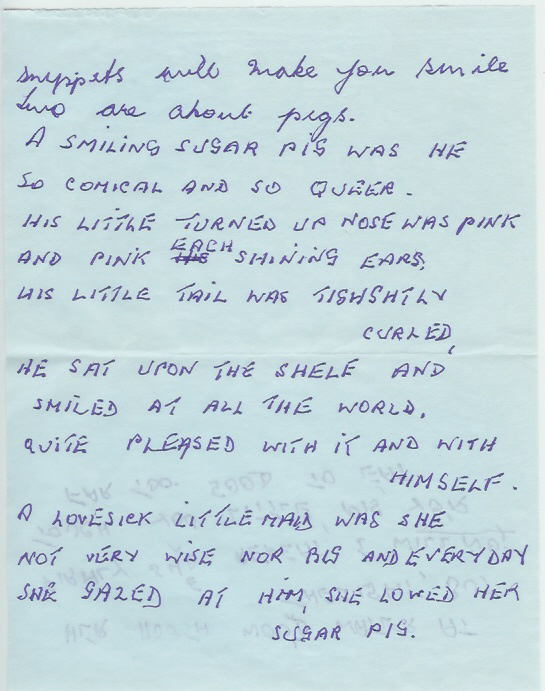 snyppets will make you smile
two are about pigs.
A SMILING SUGAR PIG WAS HE
SO COMICAL AND SO QUEER.
HIS LITTLE TURNED UP NOSE WAS PINK
AND PINK EACH SHINING EARS,
HIS LITTLE TAIL WAS TIGHSHTLY
CURLED,
HE SAT UPON THE SHELF AND
SMILED AT ALL THE WORLD.
QUITE PLEASED WITH IT AND WITH
HIMSELF.
A LOVESICK LITTLE MAID WAS SHE
NOT VERY WISE NOR BIG AND EVERYDAY
SHE GAZED AT HIM, SHE LOWED HER
SUGAR PIG.